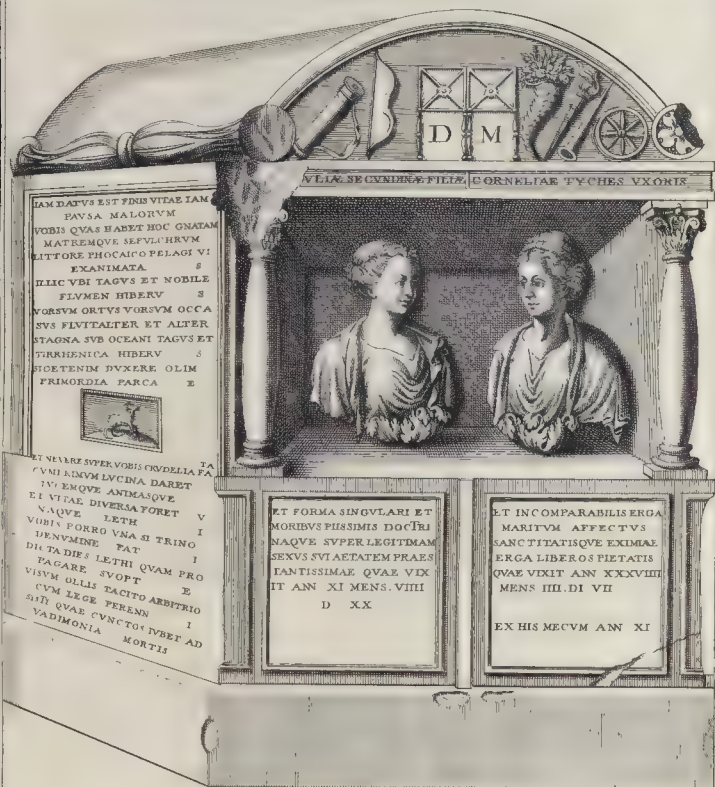 D M
VLIÆ SECVNDINÆ FILIÆ CORNELIAE TYCHES VXORIS
IAM DATVS EST FINIS VITAE IAM
PAVSA MALORVM
VOBIS QVAS HABET HOC GNATAM
MATREMQVE SEPVLCHRVM
LITTORE PHOCAICO PELAGI VI
EXANIMATA S
ILLIC VBI TAGVS ET NOBILE
FLVMEN HIBERV S
VORSVM ORTVS VORSVM OCCA
SVS FLVITALTER ET ALTER
STAGNA SVB OCEANI TAGVS ET
TIRRHENICA HIBERV S
SICETENIM DVXERE OLIM
PRIMORDIA PARCA E
ET NEVERE SVPER VOBIS CRVDELIA FA TA
CVM PRIMVM LVCINA DARET
EMQVE ANIMASQVE
ET VITAE DIVERSA FORET V
NAQVE LETH I
VOBIS PORRO VNA SI TRINO
DENVMINE FAT I
DICTA DIES LETHI QVAM PRO
PAGARE SVOPT E
VISVM OLLIS TACITO ARBITRIO
CVM LEGE PERENN I
SISTI QVAE CVNCTOS IVBET AD
VADIMONIA MORTIS
ET FORMA SINGVLARI ET
MORIBVS PIISSIMIS DOCTRI
NAQVE SVPER LEGITIMAM
SEXVS SVI AETATEM PRAES
TANTISSIMAE QVAE VIX
IT ANN XI MENS. VIIII
D XX
ET INCOMPARABILIS ERGA
MARITVM AFFECTVS
SANCTITATISQVE EXIMIAE
ERGA LIBEROS PIETATIS
QVAE VIXIT ANN XXXVIIII
MENS IIII. DI VII
EX HIS MECVM ANN XI